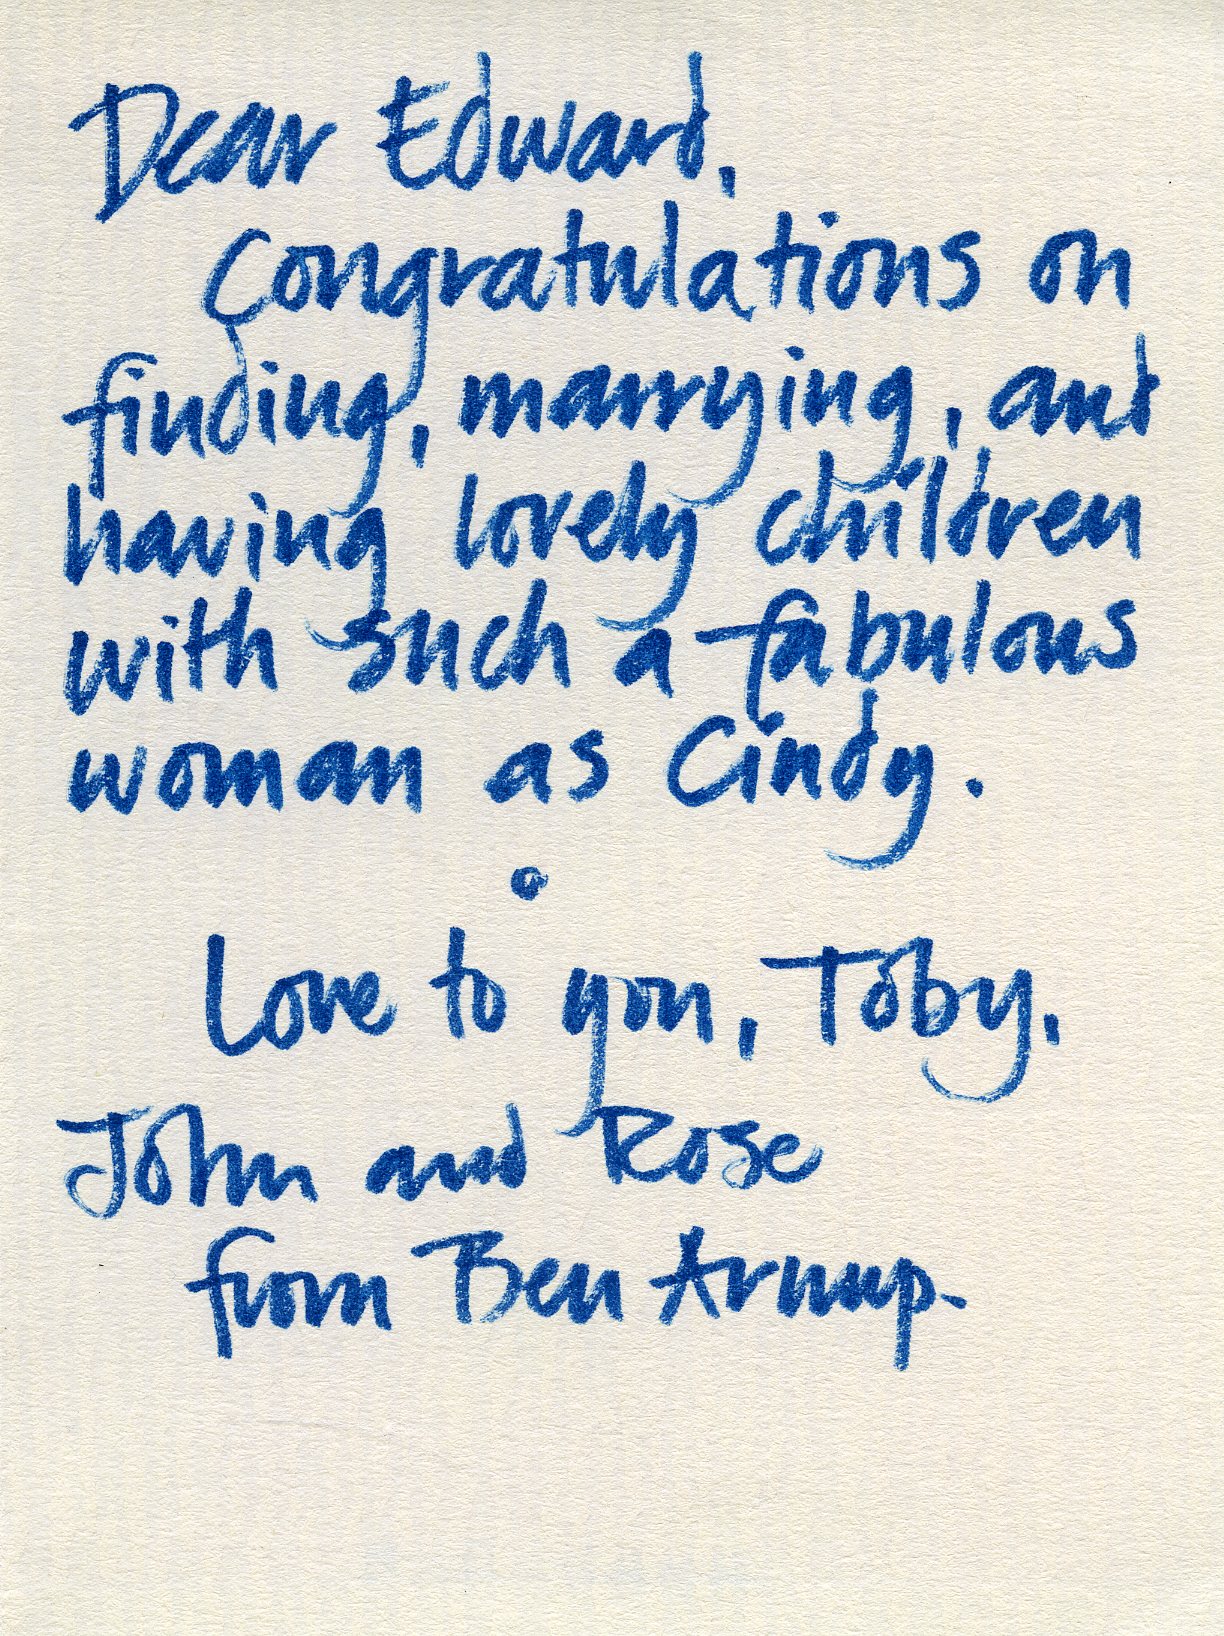 Dear Edward,
Congratulations on
finding, marrying, and
having lovely children
with such a fabulous
woman as Cindy.
Love to you, Toby,
John and Rose
from Ben Arnup.